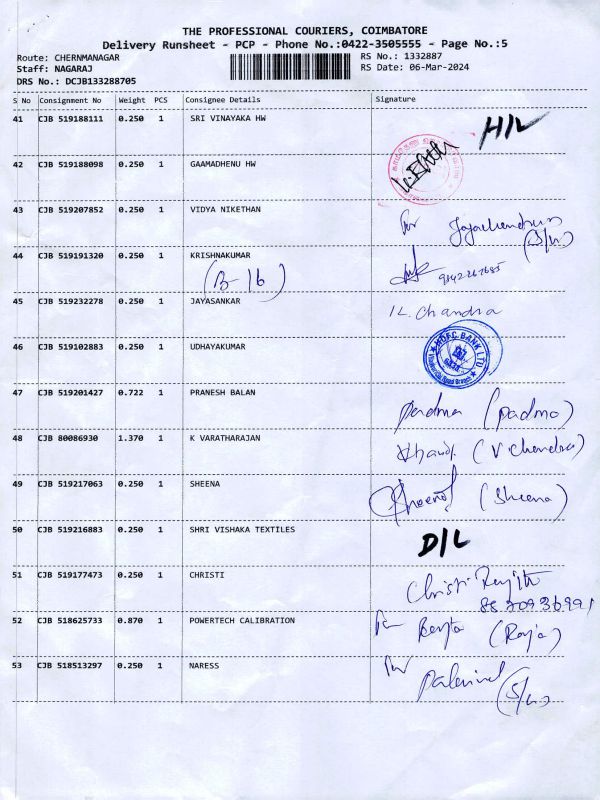 THE PROFESSIONAL COURIERS, COIMBATORE
Delivery Runsheet - PCP - Phone No.:0422-3505555 - Page No.:5
Route: CHERNMANAGAR
Staff: NAGARAJ
DRS No.: DCJB133288705
RS No.: 1332887
RS Date: 06-Mar-2024
S No Consignment No Weight PCS Consignee Details Signature
41 CJB 519188111 0.250 1 SRI VINAYAKA HW H/L
42 CJB 519188098 0.250 1 GAAMADHENU HW
43 CJB 519207852 0.250 1 VIDYA NIKETHAN
44 CJB 519191320 0.250 1 KRISHNAKUMAR
(B-16)
45 CJB 519232278 0.250 1 JAYASANKAR K. Chandra
46 CJB 519102883 0.250 1 UDHAYAKUMAR HDFC BANK LTD
47 CJB 519201427 0.722 1 PRANESH BALAN Padma (Padma)
48 CJB 80086930 1.370 1 K VARATHARAJAN (V Chandra)
49 CJB 519217063 0.250 1 SHEENA Sheena (Sheena)
50 CJB 519216883 0.250 1 SHRI VISHAKA TEXTILES D/L
51 CJB 519177473 0.250 1 CHRISTI Christi
52 CJB 518625733 0.870 1 POWERTECH CALIBRATION (Raja)
53 CJB 518513297 0.250 1 NARESS Palanivel